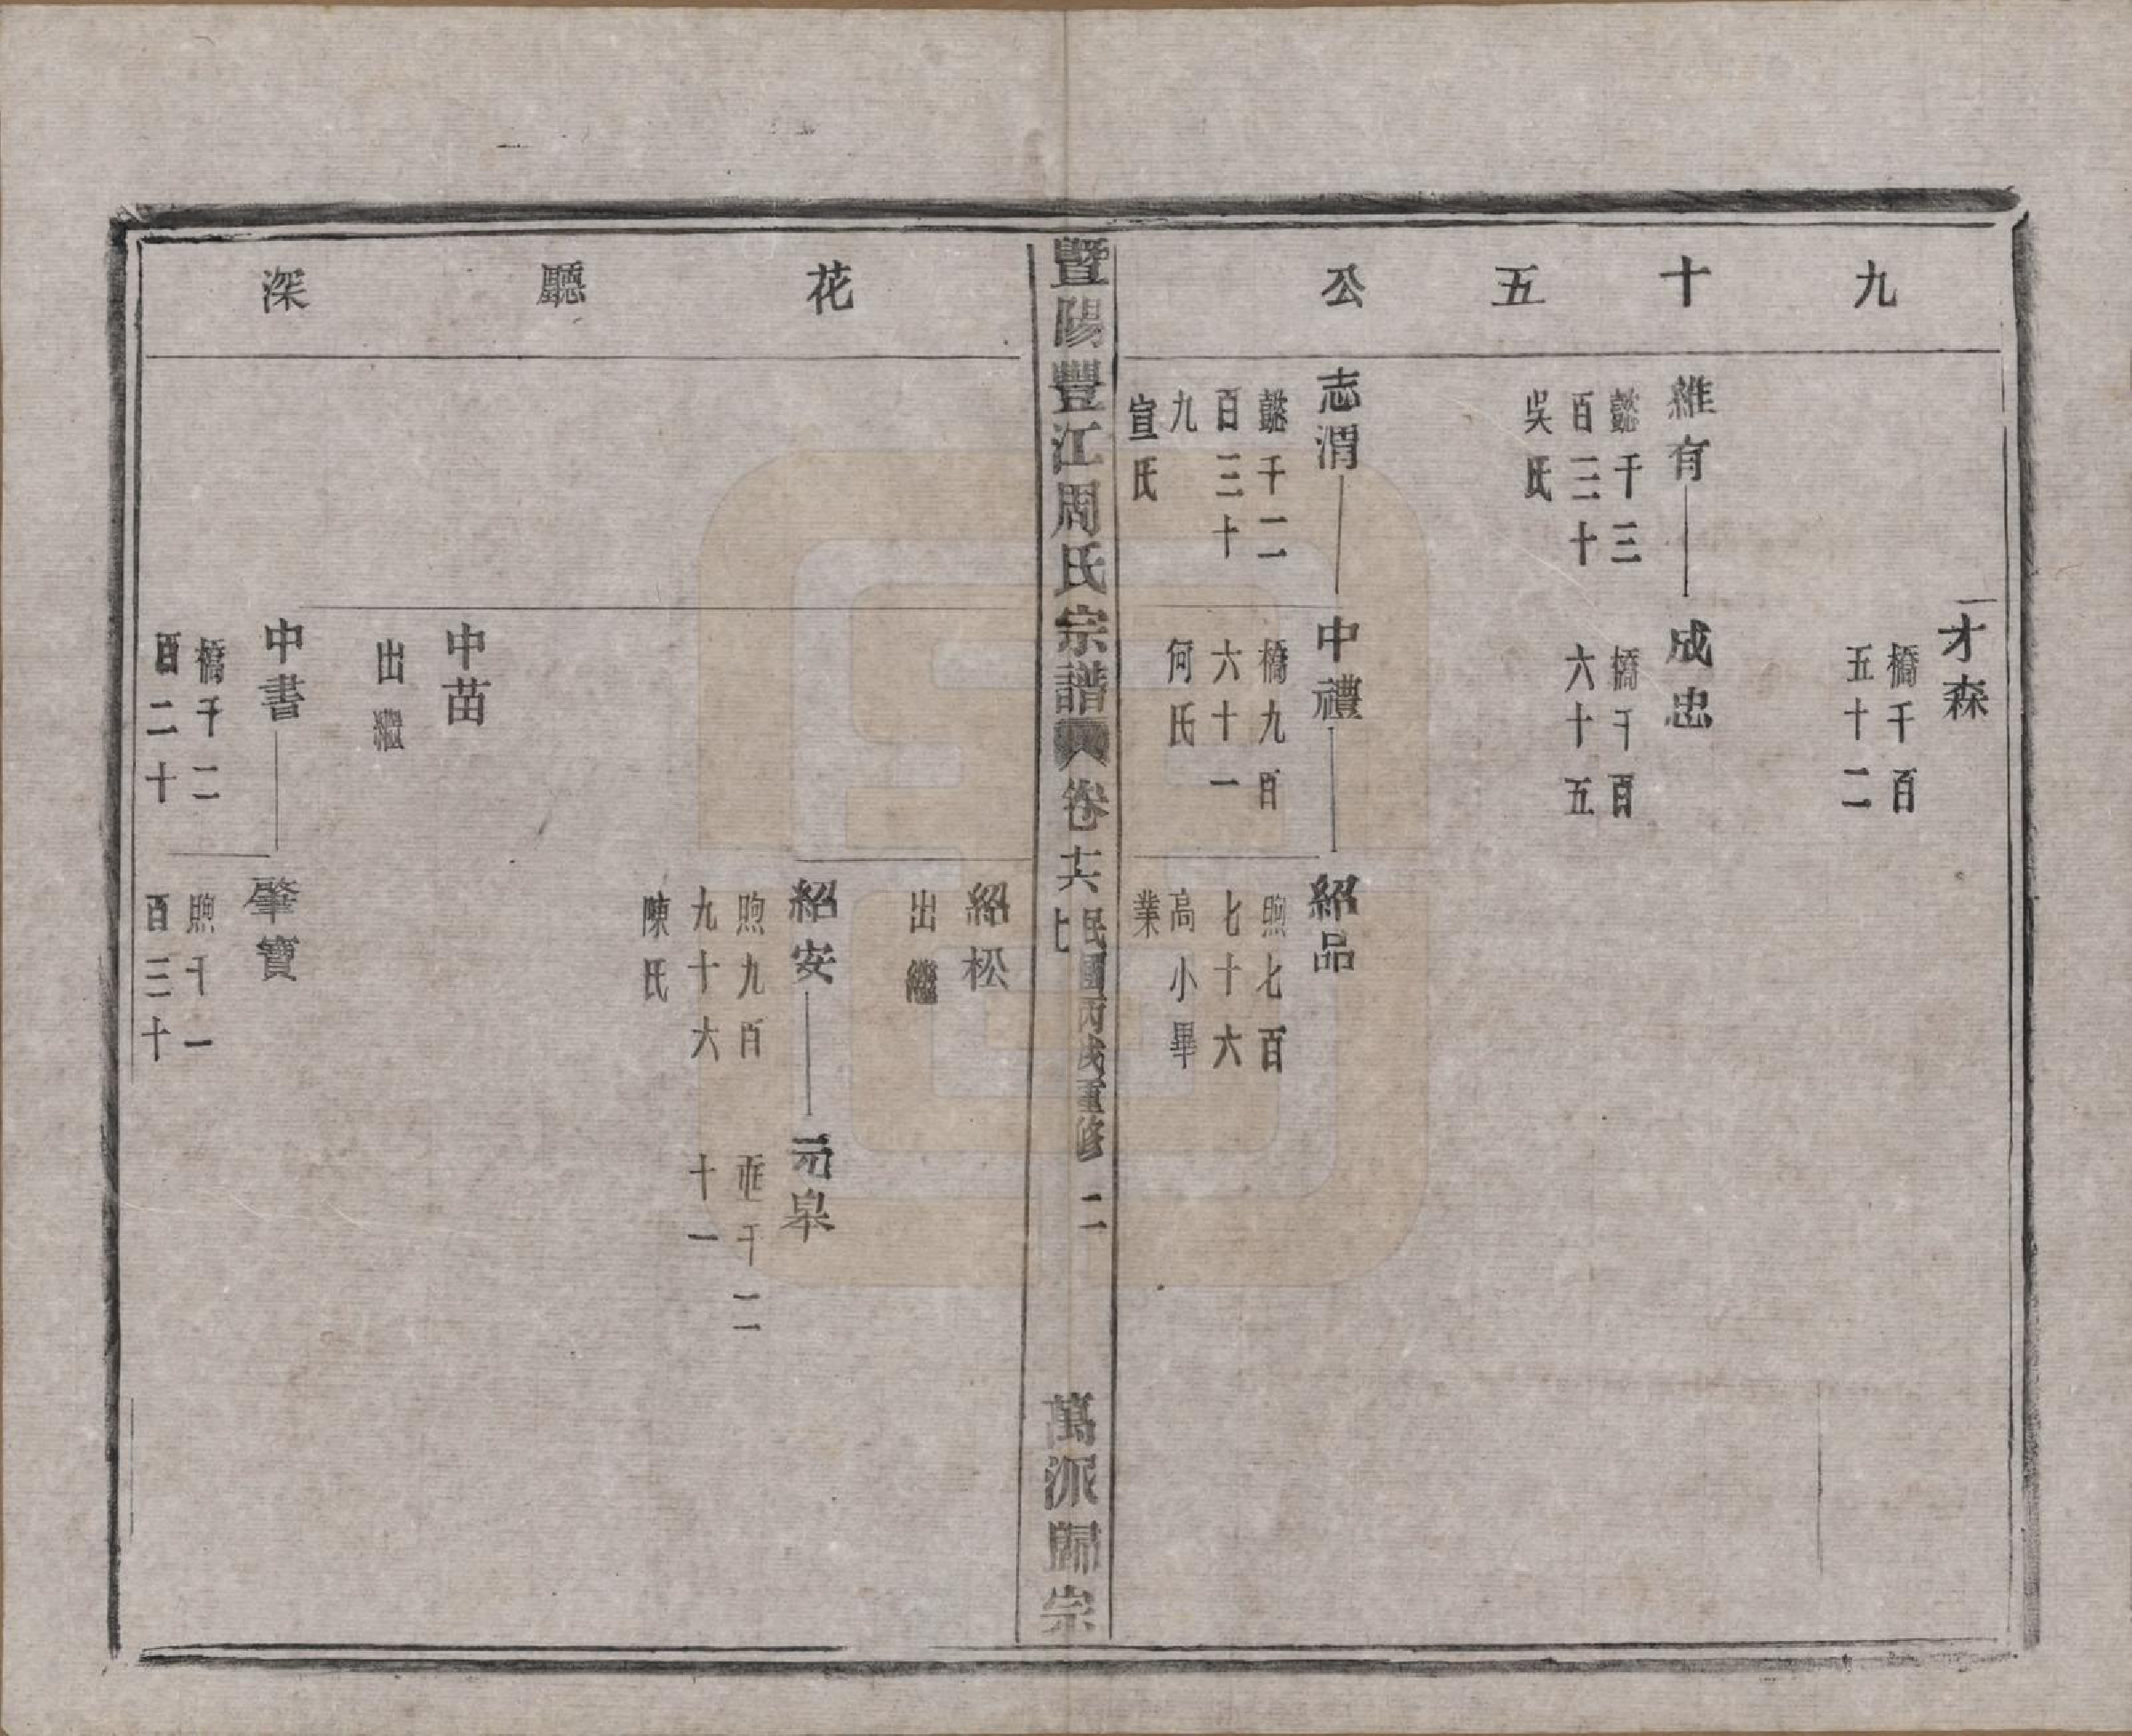 九十五公
才森
橋千百
五十二
維有
懿千三
百二十
吳氏
成忠
橋千百
六十五
志渭
懿千二
百三十
九
宣氏
中禮
橋九百
六十一
何氏
紹品
煦七百
七十六
高小畢
業
暨陽豐江周氏宗譜
卷十六
民國丙戌重修
二
萬派歸宗
花廳深
紹松
出繼
紹安
煦九百
九十六
陳氏
元皋
千二
十一
中苗
出繼
中書
橋千二
百二十
肇寶
煦千一
百三十